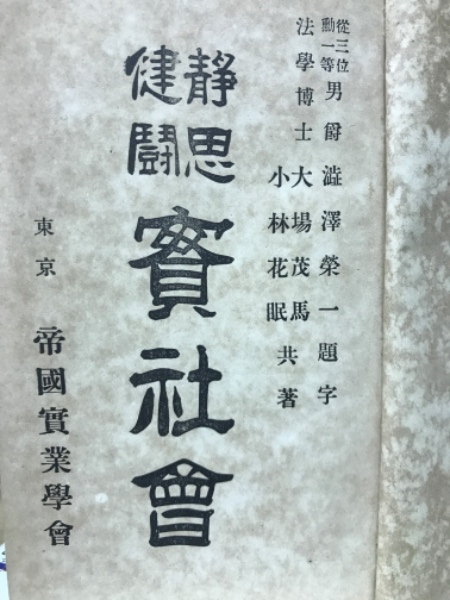 從三位
勳一等
男爵澁澤榮一題字
法學博士大場茂馬
小林花眠
共著
靜思
健鬪
實社會
東京
帝國實業學會